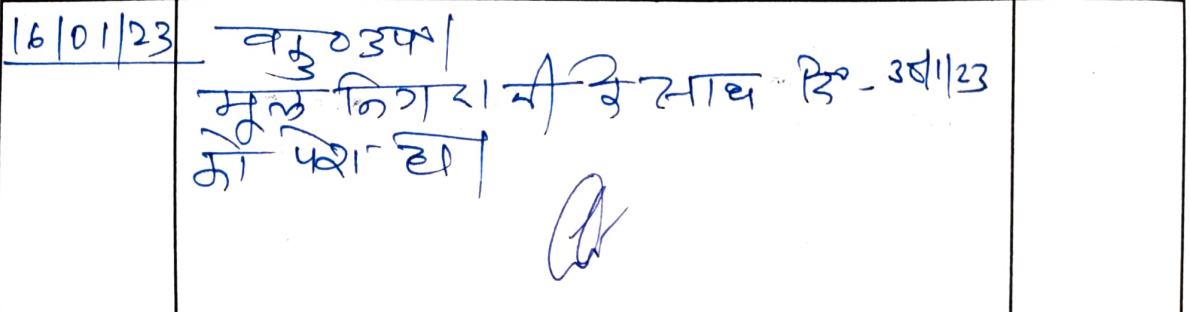 16/01/23
वकु० उप०।
मूल निगरानी के साथ दि०-
को पेश हो।